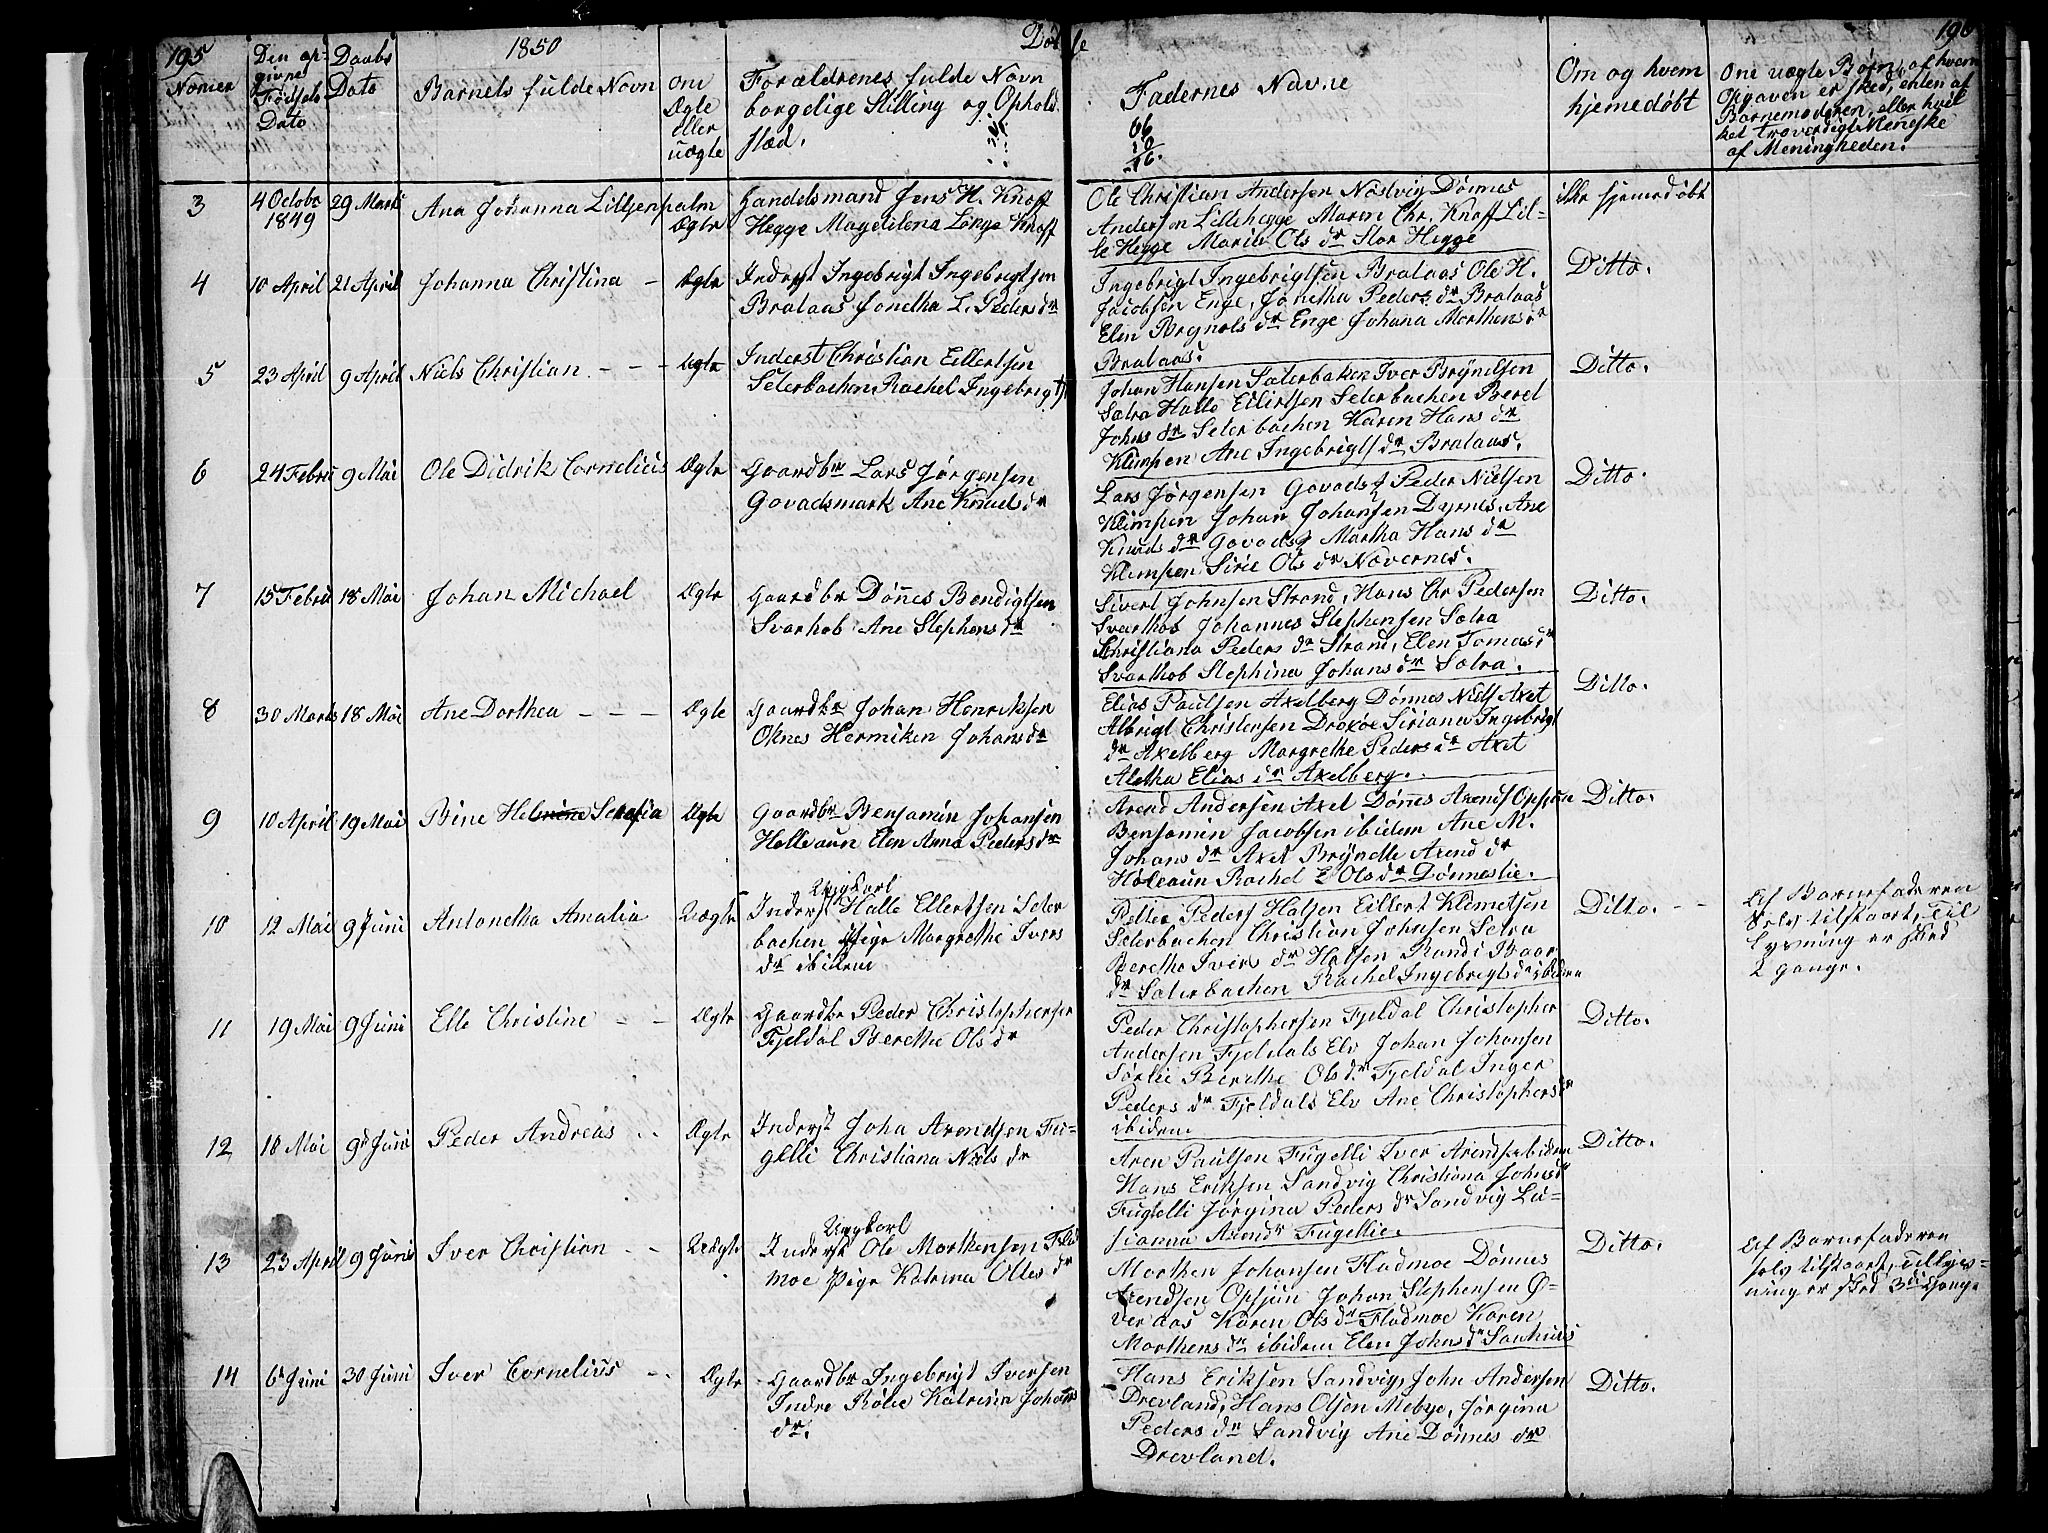 195
1850
Døbte
196
Nomer
Den opgivne Fødsels Dato
Daabs Dato
Barnets fulde Navn
om Ægte eller uægte
Forældrenes fulde Navn borgelige Stilling og Opholdsted.
Faddernes Navne
66
10
76.
Om og hvem hjemedøbt
Om uægte Børn, af hvem Opgaven er skeed, enten af Barnemoderen, eller hvilket troværdigt Meneske af Meningheden.
3
4 Octobr 1849
29 Marts
Ana Johanna Liltzenpalm
Ægte
Handelsmand Jens H. Knoff
Hegge Magdelena Longe Knoff
Ole Christian Andersen Nordvig Dønnes
Andersen Lillehegge Maren Chr. Knoff Lil-
le Hegge Marie Ols dr Stor Hegge
ikke hjemedøbt
4
10 April
21 April
Johanna Christina -
Ægte
Inderst Ingebrigt Ingebrigtsen
Brataas Jonetha L. Peders dr
Ingebrigt Ingebrigtsen Brataas Ole H.
Jacobsen Enge, Jonetha Peders dr Brataas
Elen Brynels dr Enge Johana Morthens dr
Brataas.
Ditto.
5
23 April
9 April
Niels Christian - - -
Ægte
Inderst Christian Eilertsen
Seterbachen Rachel Ingebrigts
Johan Hansen Sæterbaken Iver Brynelsen
Sætra Halle Eilertsen Seterbachen Beret
Johns dr Seterbachen Karen Hans dr
Klimpen Ane Ingebrigts dr Brataas.
Ditto.
6
24 Febru
9 Mai
Ole Didrik Cornelius
Ægte
Gaardbr Lars Jørgensen
Govadsmark Ane Knuds dr
Lars Jørgensen Govads Peder Nielsen
Klimpen Johan Johansen Dyrnes, Ane
Knuds dr Govads Martha Hans dr
Klimpen Sirie Ols dr Navernes.
Ditto.
7
15 Febru
18 Mai
Johan Michael
Ægte
Gaardbr Dønnes Bendigtsen
Svarthob Ane Stephens dr
Sivert Johnsen Strand, Hans Chr Pedersen
Svarthob Johannes Stephensen Sætra
Christiana Peders dr Strand, Elen Tomas dr
Svarthob Stephina Johans dr Sætra.
Ditto.
8
30 Marts
18 Mai
Ane Dorthea - - -
Ægte
Gaardbr Johan Henriksen
Oknes Hermiken Johans dr
Elias Paulsen Axelberg Dønnes Niels Axet
Albrigt Christensen Droxøe Siriana Ingebrigt
dr Axelberg Margrethe Peders dr Axet
Aletha Elias dr Axelberg.
Ditto.
9
10 April
19 Mai
Bine Helmine Serafia
Ægte
Gaardbr Benjamin Johansen
Holleaun Elen Anna Peders dr
Arend Andersen Axet Dønnes Arends Opsjøn
Benjamin Jacobsen ibidem Ane M.
Johans dr Axet Brynelle Arend dr
Holeaun Rachel Ols dr Dønneslie.
Ditto.
10
12 Mai
9 Juni
Antonetha Amalia
Uægte
Ungkarl
Inderst Halle Ellertsen Seter
bachen Pige Margrethe Ivers
dr ibidem
Petter Peders Halsen Eillert Klemetsen
Seterbachen Christian Johnsen Setra
Berethe Ivers dr Halsen Randi Baar
dr Sæterbachen Rachel Ingebrigts dr ibidem
Ditto. - -
Af Barnefaderen
selv tilstaaet, Til
lysning er skeed
2 gange.
11
19 Mai
9 Juni
Elle Christine - -
Ægte
Gaardbr Peder Christophersen
Fjeldal Berethe Ols dr
Peder Christophersen Fjeldal Christopher
Andersen Fjeldals Elv Johan Johansen
Sørlie Berethe Ols dr Fjeldal Inger
Peders dr Fjeldals Elv Ane Christophers dr
ibidem
Ditto.
12
18 Mai
9 Juni
Peder Andreas - -
Ægte
Inderst Joha Arendsen Fu-
gelli Christiana Niels dr
Aren Paulsen Fugelli Iver Arends ibidem
Hans Eriksen Sandvig Christiana Johns dr
Fugelli Jørgina Peders dr Sandvig Lu-
sianna Arends dr Fugellie.
Ditto.
13
23 April
9 Juni
Iver Christian - -
Uægte
Ungkarl
Inderst Ole Morthensen Flad
moe Pige Katrina Olles dr
Morthen Johansen Fladmoe Dønnes
Arendsen Opsjøn Johan Stephensen Ø-
veraas Karen Ols dr Fladmoe Karen
Morthens dr ibidem Elen Johns dr Sanhuus
Ditto.
Af Barnefaderen
selv tilstaaet, Tillys-
ning er skeed 3die Gang.
14
6 Juni
30 Juni
Iver Cornelius - -
Ægte
Gaardbr Ingebrigt Iversen
Indre Rølie Katrina Johans
dr.
Hans Eriksen Sandvig, John Andersen
Drevland, Hans Olsen Mebye, Jørgina
Peders dr Sandvig Ane Dønnes dr
Drevland.
Ditto.